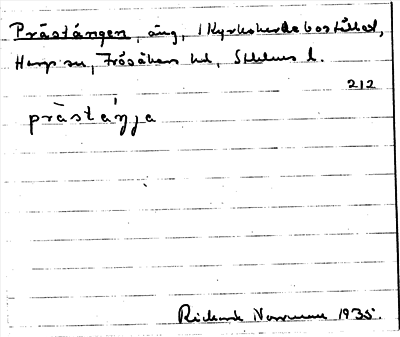 Prästängen, äng, 1 Kyrkoherdebostället,
Harp sn, Frösåkers hd, Sthlms l.
212
pr̀àstáŋja
Richard Norrman 1935.